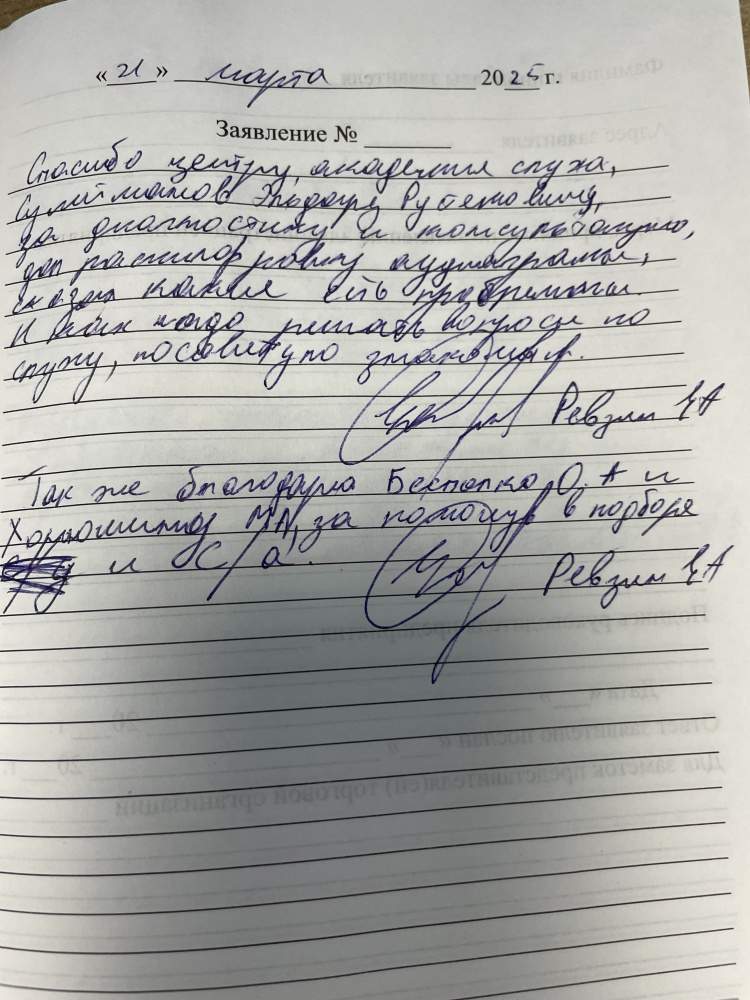 «21» марта 2025 г.
Заявление №
Спасибо центру, академия слуха,
Эльдару Рубеновичу,
за диагностику и консультацию,
дал расшифровку аудиаграмы,
сказал какие есть
И как надо решать вопросы по
слуху, посоветую знакомым.
Ревзин
Так же благодарна Беспалко О.А и
МЛ, за помощь в подборе
и С/а.
Ревзин